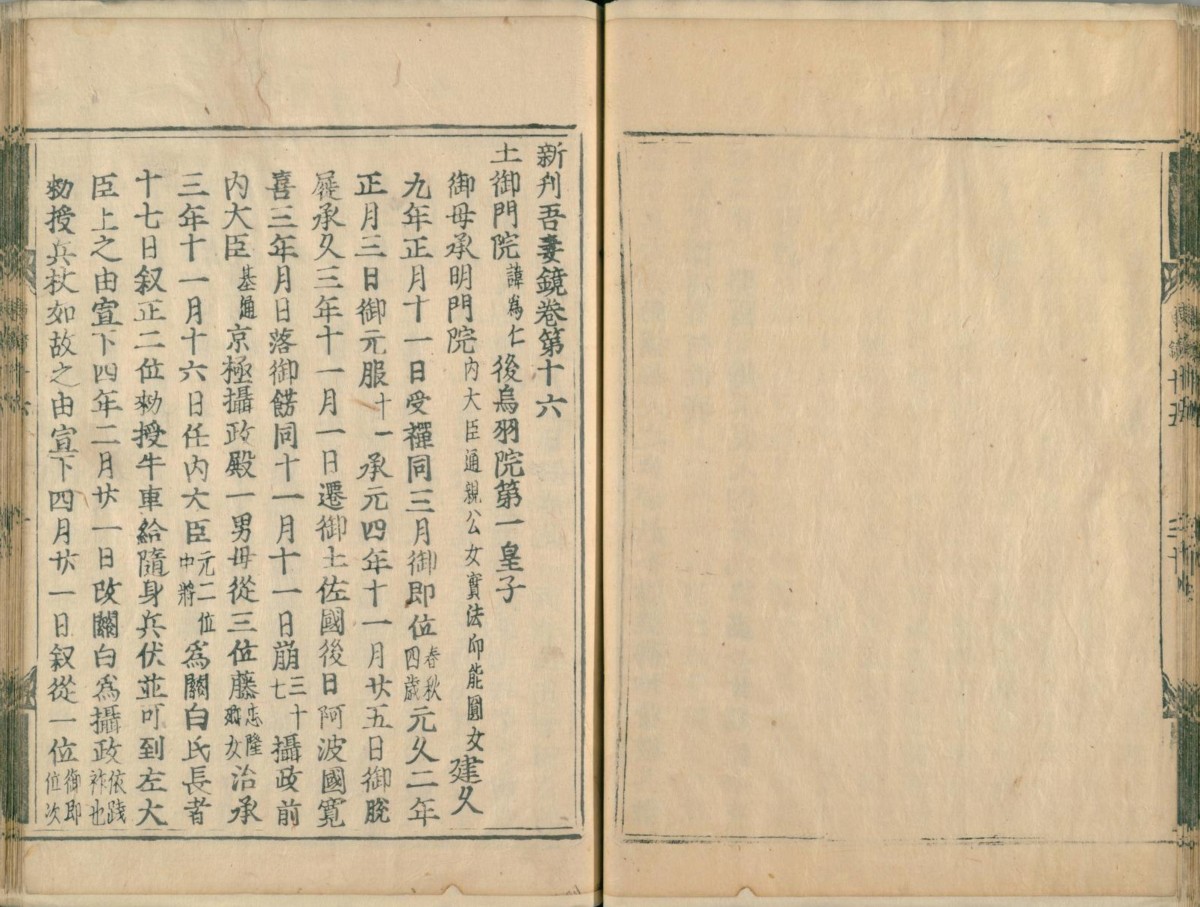 新刋吾妻鏡卷第十六
土御門院諱為仁後鳥羽院第一皇子
御母承明門院內大臣通親公女實法印能圓女建久
九年正月十一日受禪同三月御即位春秋四歲元久二年
正月三日御元服十一承元四年十一月廿五日御脫
屣承久三年十一月一日遷御土佐國後日阿波國寬
喜三年月日落御餝同十一月十一日崩三十七攝政前
內大臣基通京極攝政殿一男母從三位藤忠隆女治承
三年十一月十六日任內大臣元二位中將為關白氏長者
十七日叙正二位勑授牛車給隨身兵伏並可到左大
臣上之由宣下四年二月廿一日改關白為攝政依踐祚也
勑授兵杖如故之由宣下四月廿一日叙從一位御即位次